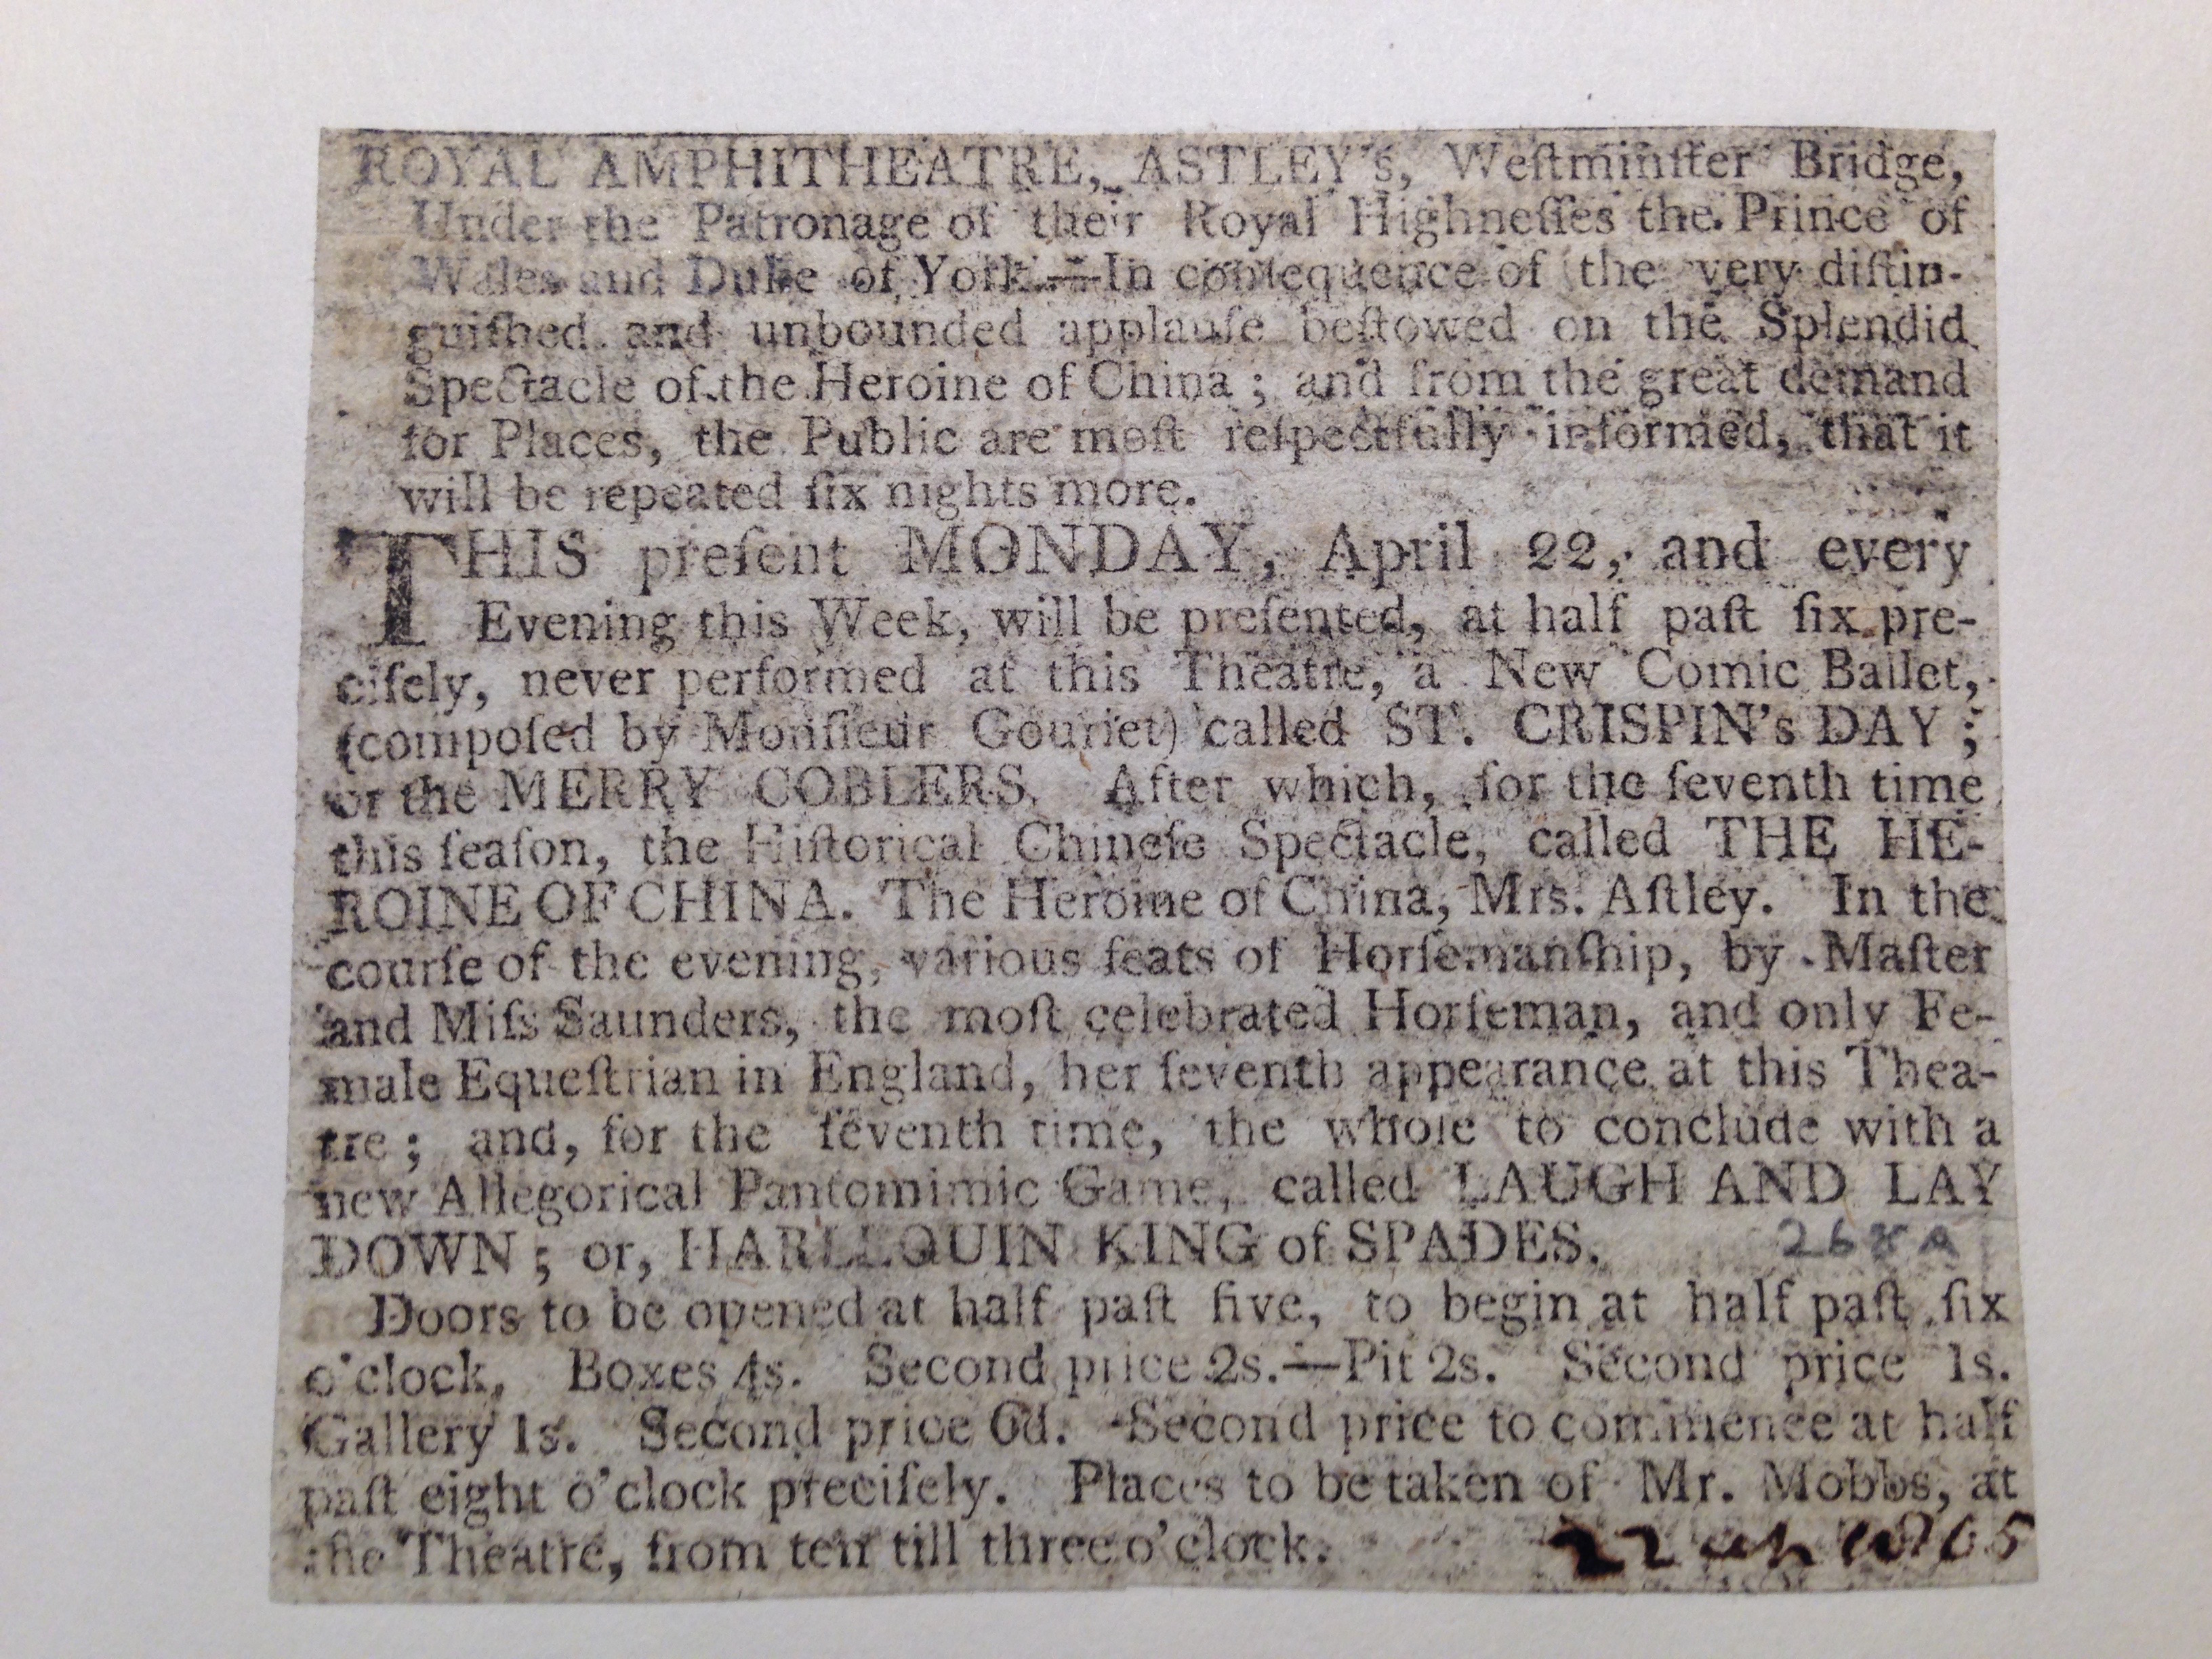 ROYAL AMPHITHEATRE, ASTLEY's, Weſtminſter Bridge,
Under the Patronage of their Royal Highneſſes the Prince of
Wales and Duke of York.—In conſequence of the very diſtin-
guiſhed and unbounded applauſe beſtowed on the Splendid
Spectacle of the Heroine of China; and from the great demand
for Places, the Public are moſt reſpectfully informed, that it
will be repeated ſix nights more.
THIS preſent MONDAY, April 22, and every
Evening this Week, will be preſented, at half paſt ſix pre-
ciſely, never performed at this Theatre, a New Comic Ballet,
(compoſed by Monſieur Gouriet) called ST. CRISPIN's DAY;
or the MERRY COBLERS. After which, for the ſeventh time
this ſeaſon, the Hiſtorical Chineſe Spectacle, called THE HE-
ROINE OF CHINA. The Heroine of China, Mrs. Aſtley. In the
courſe of the evening, various feats of Horſemanſhip, by Maſter
and Miſs Saunders, the moſt celebrated Horſeman, and only Fe-
male Equeſtrian in England, her ſeventh appearance at this Thea-
tre; and, for the ſeventh time, the whole to conclude with a
new Allegorical Pantomimic Game, called LAUGH AND LAY
DOWN; or, HARLEQUIN KING of SPADES.
Doors to be opened at half paſt five, to begin at half paſt ſix
o'clock, Boxes 4s. Second price 2s.—Pit 2s. Second price 1s.
Gallery 1s. Second price 6d. Second price to commence at half
paſt eight o'clock preciſely. Places to be taken of Mr. Mobbs, at
the Theatre, from ten till three o'clock.
22